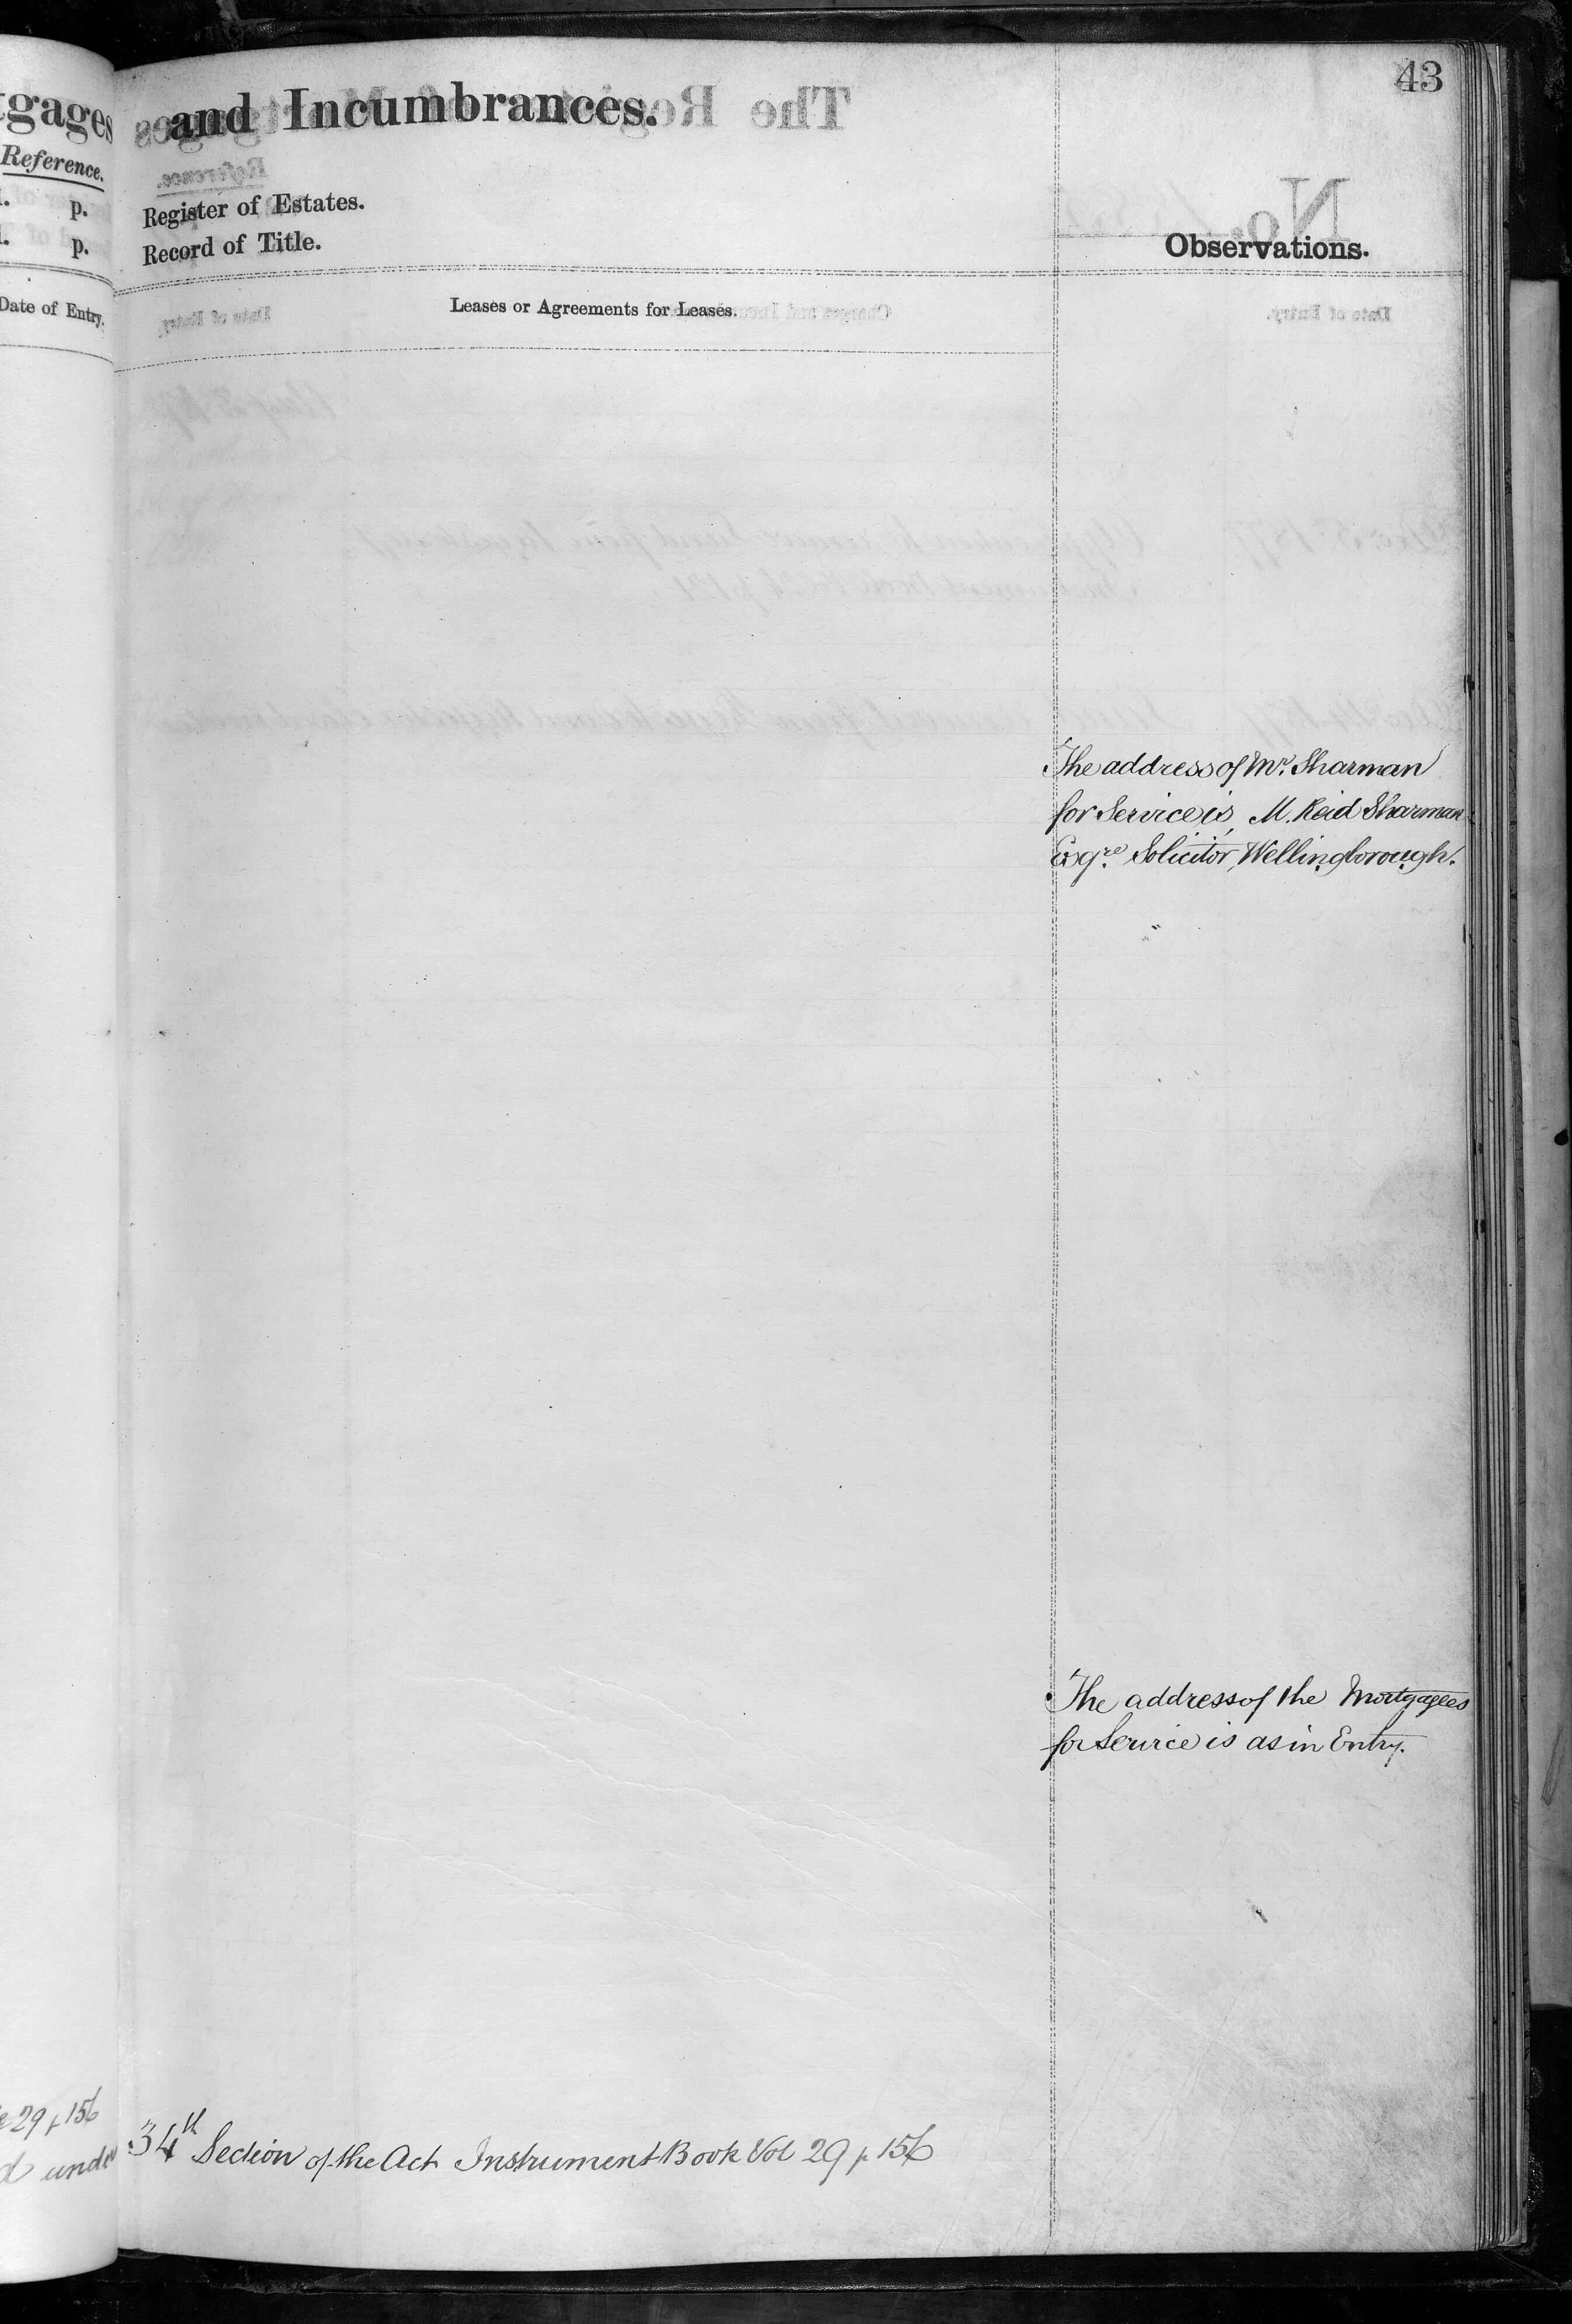 43
tgages
and Incumbrances.
Reference.
p.
Register of Estates.
p.
Record of Title.
Observations.
Date of Entry.
Leases or Agreements for Leases.
The address of Mr. Sharman
for Service is, M. Reid Sharman
Esqre. Solicitor, Wellingborough.
The address of the Mortgagees
for Service is as in Entry.
29 p 156
under
34th Section of the Act Instrument Book Vol 29 p 156